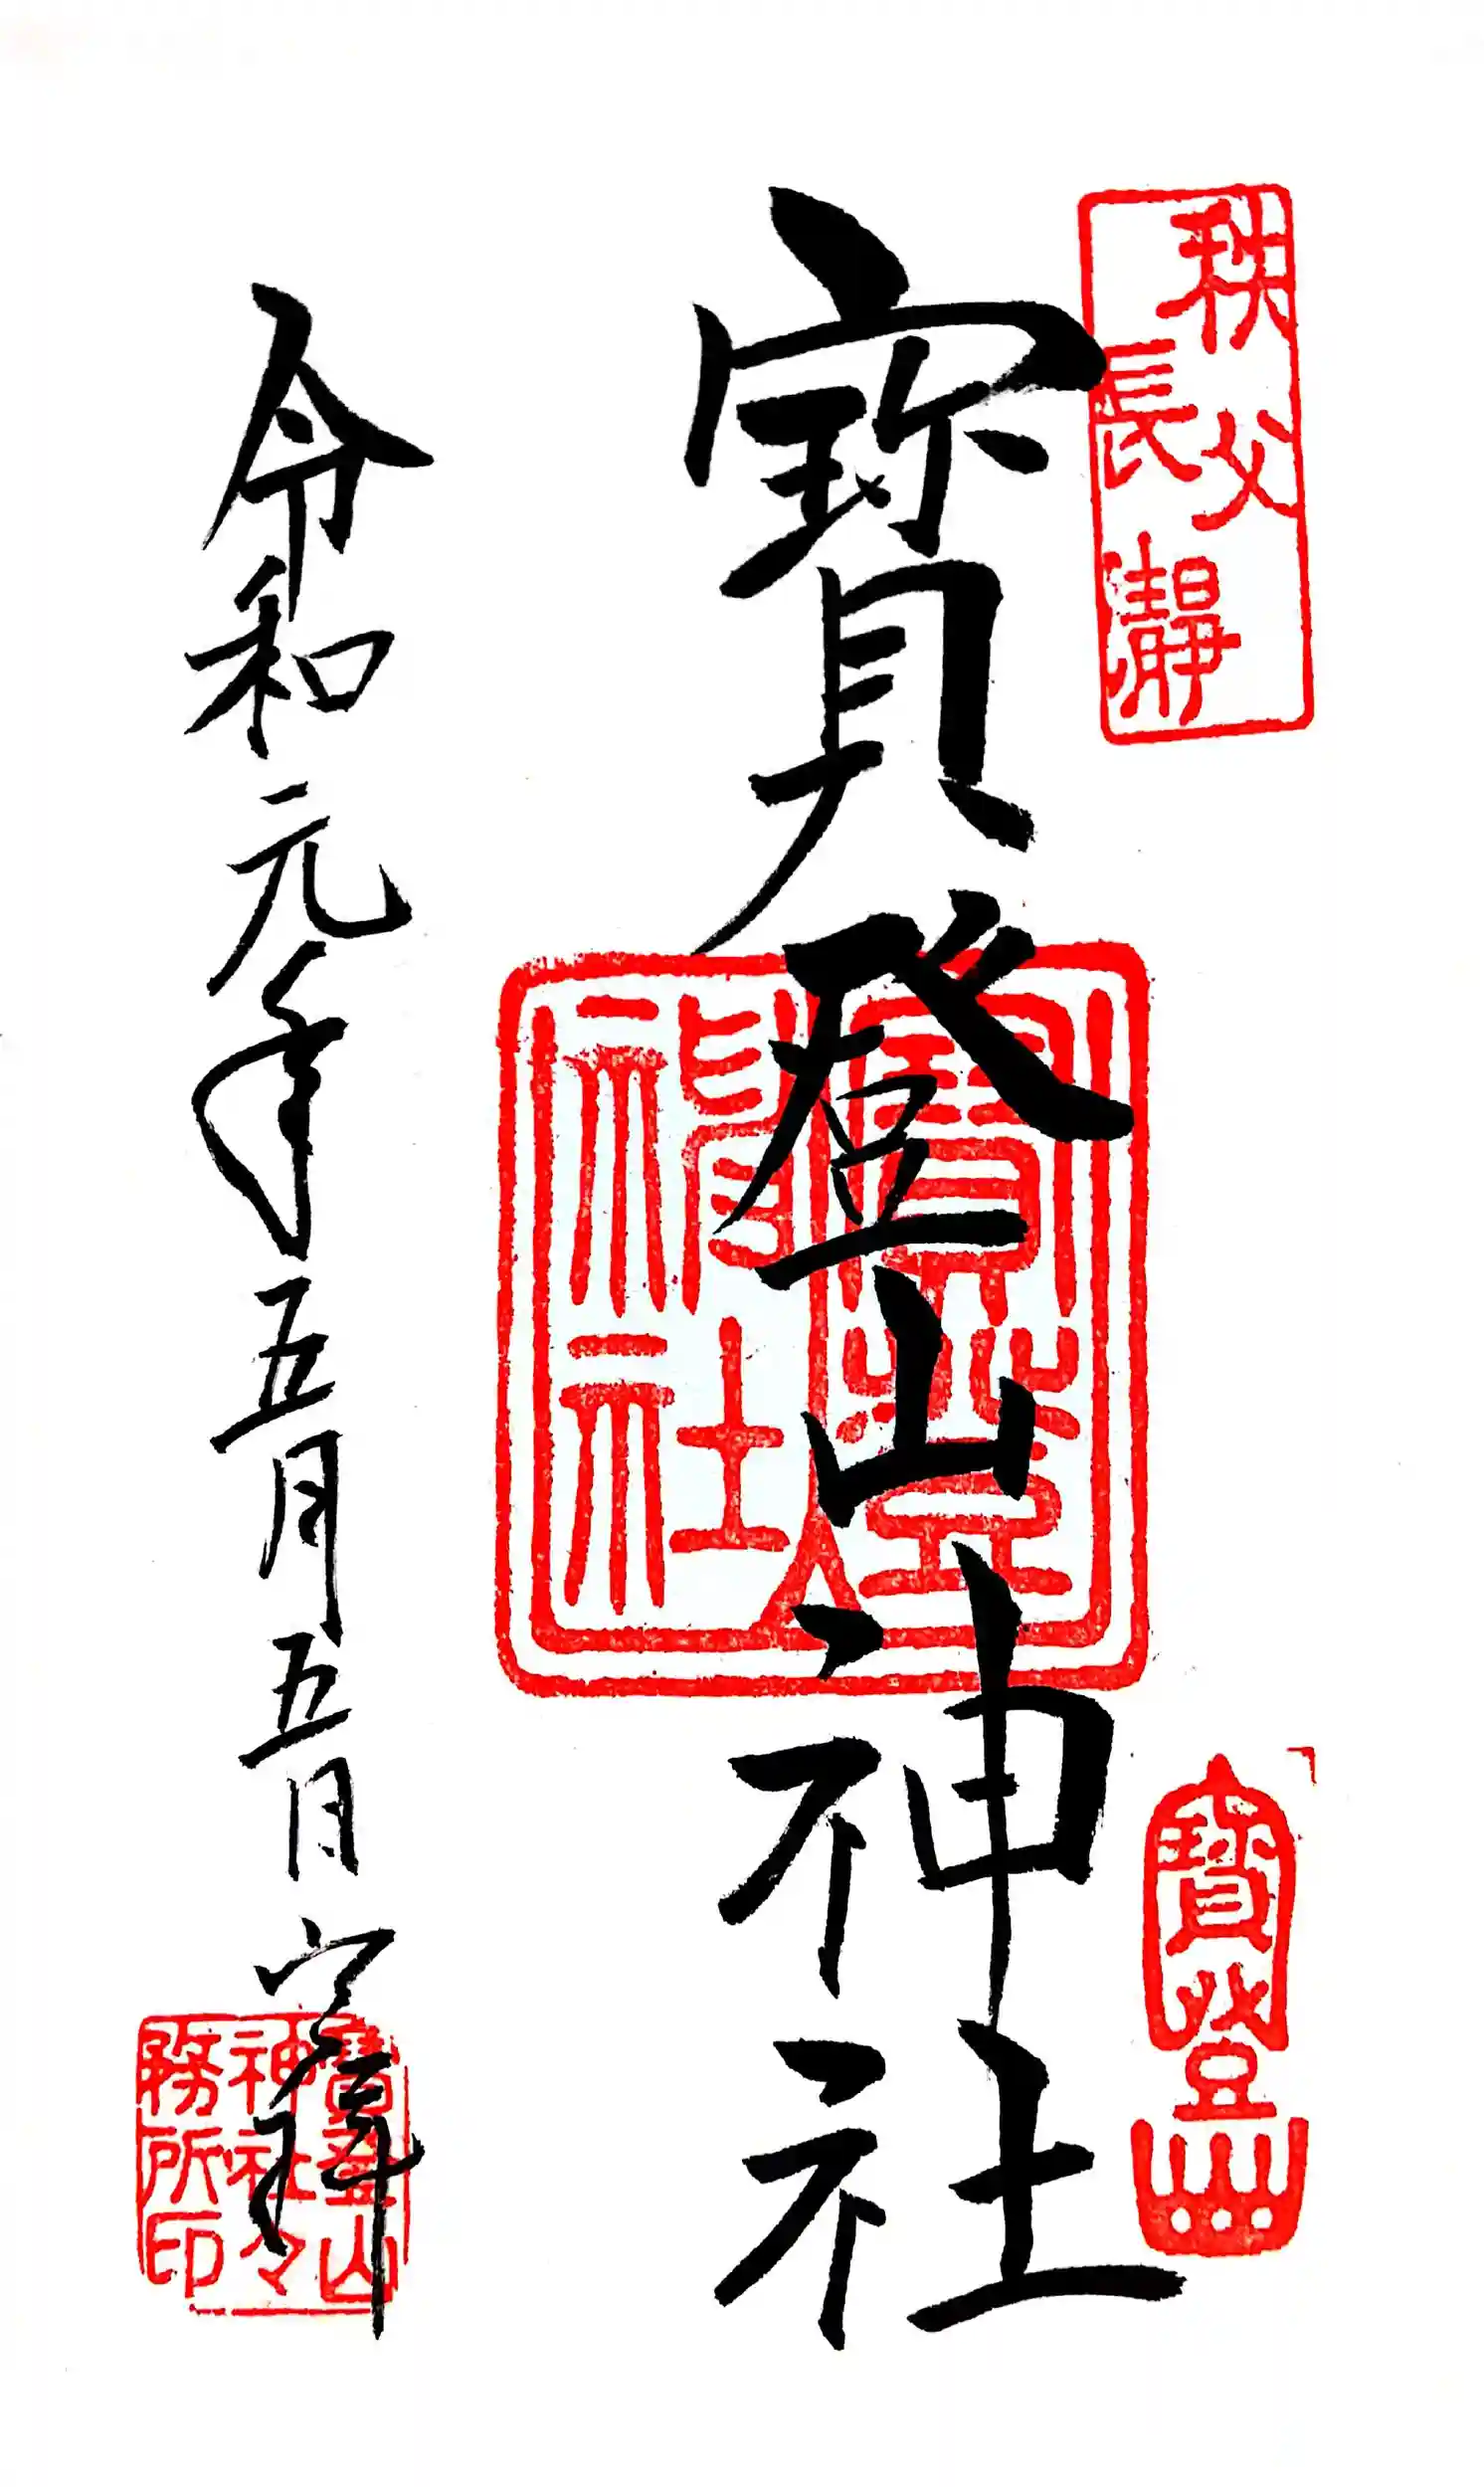 秩父
長瀞
寳登山神社
寳登山
神社
寳登山
令和元年五月五日
寳登山
神社々
務所印